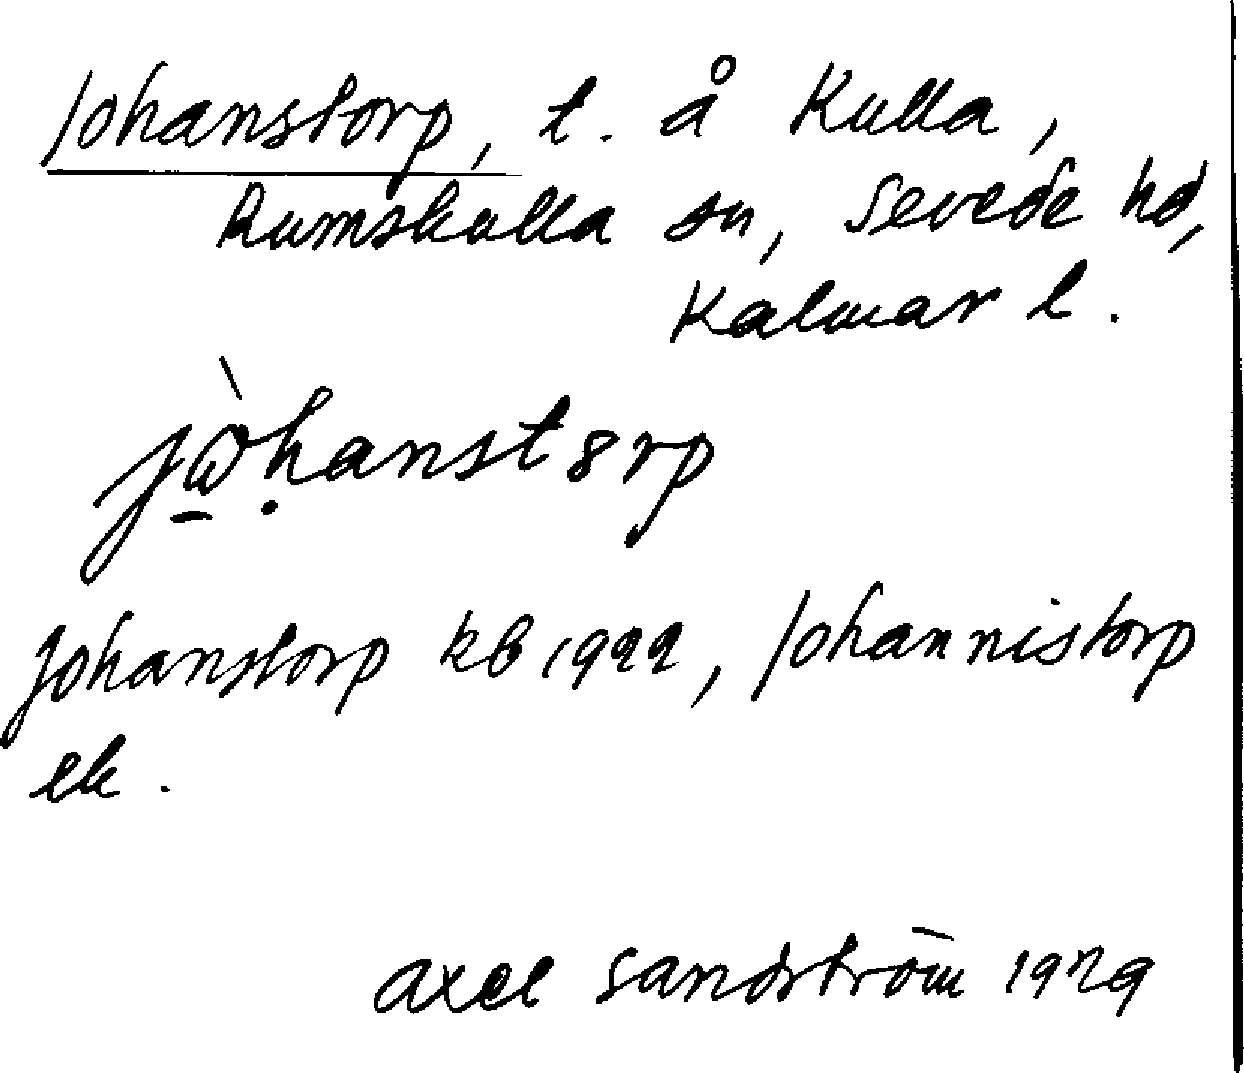 Johanstorp, t. å Kulla,
Rumskulla sn, Sevede hd,
Kalmar l.
jὼ̱ḥanstȣrp
Johanstorp kb 1922, Johannistorp
ek.
Axel Sandström 1929